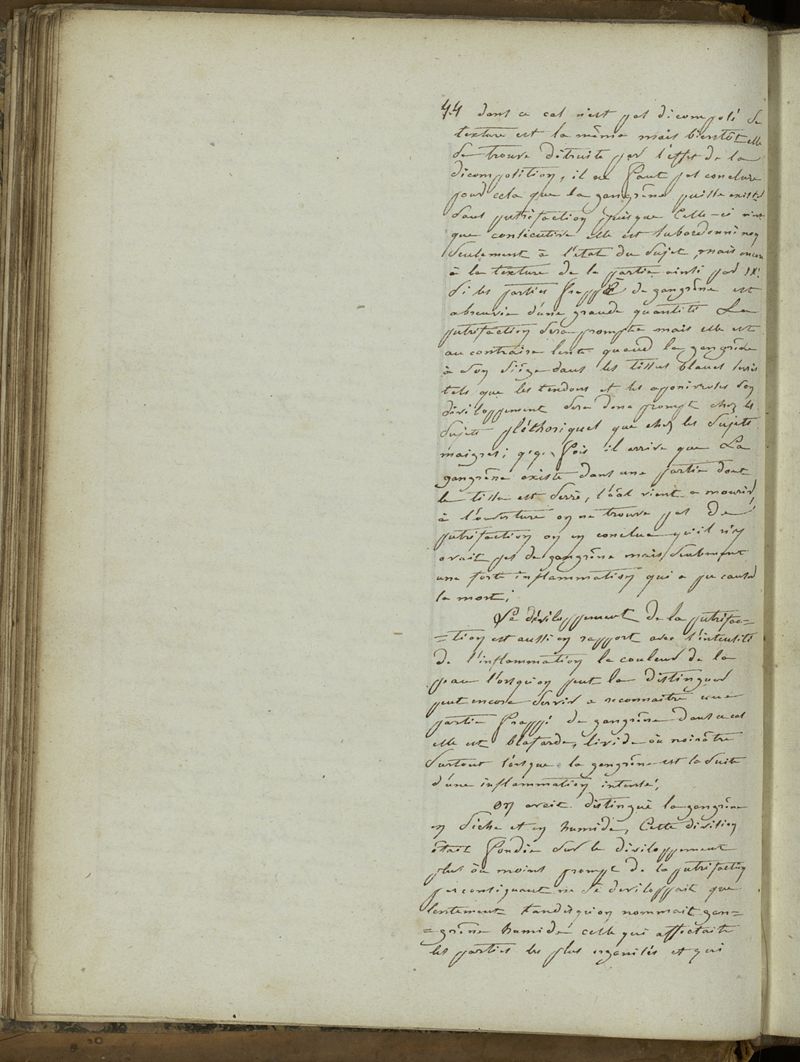 44 dans ce cas n'est pas décomposé sa
texture est la même mais bientôt elle
se trouve détruite par l'effet de la
décomposition, il ne faut pas conclure
pour cela que la gangrène puisse exister
sans putréfaction puisque celle-ci n'est
que consécutive elle est subordonné non
seulement à l'état du sujet, mais encore
à la texture de la partie ainsi par ex:
si les parties frappé de gangrène est
abreuvée d'une grande quantité La
putréfaction sera prompte mais elle est
au contraire lente quand la gangrène
à son siège dans les tissus blancs serrés
tels que les tendons et les aponévroses son
développement sera donc prompt chez les
sujets pléthoriques que chez les sujets
maigres; qqe. fois il arrive que La
gangrène existe dans une partie dont
le tissu est serré, vient a mourir,
à l'ouverture on ne trouve pas de
putréfaction on en conclue qu'il n'y
avait pas de gangrène mais seulement
une forte inflammation qui a pu causer
la mort;
Le développement de la putréfac=
=tion est aussi en rapport avec l'intensité
de l'inflammation la couleur de la
peau lorsqu'on peut la distinguer
peut encore servir a reconnaitre une
partie frappé de gangrène dans ce cas
elle est blafarde, livide où noirâtre
surtout lorsque la gangrène est la suite
d'une inflammation intense,
on avait distingué la gangrène
en sèche et en humide, Cette division
était fondée sur le développement
plus où moins prompt de la putréfaction
par conséquant ne se developpait que
lentement tandisqu'on nommait gan=
=grène humide celle qui affectait
les parties les plus organisés et qui